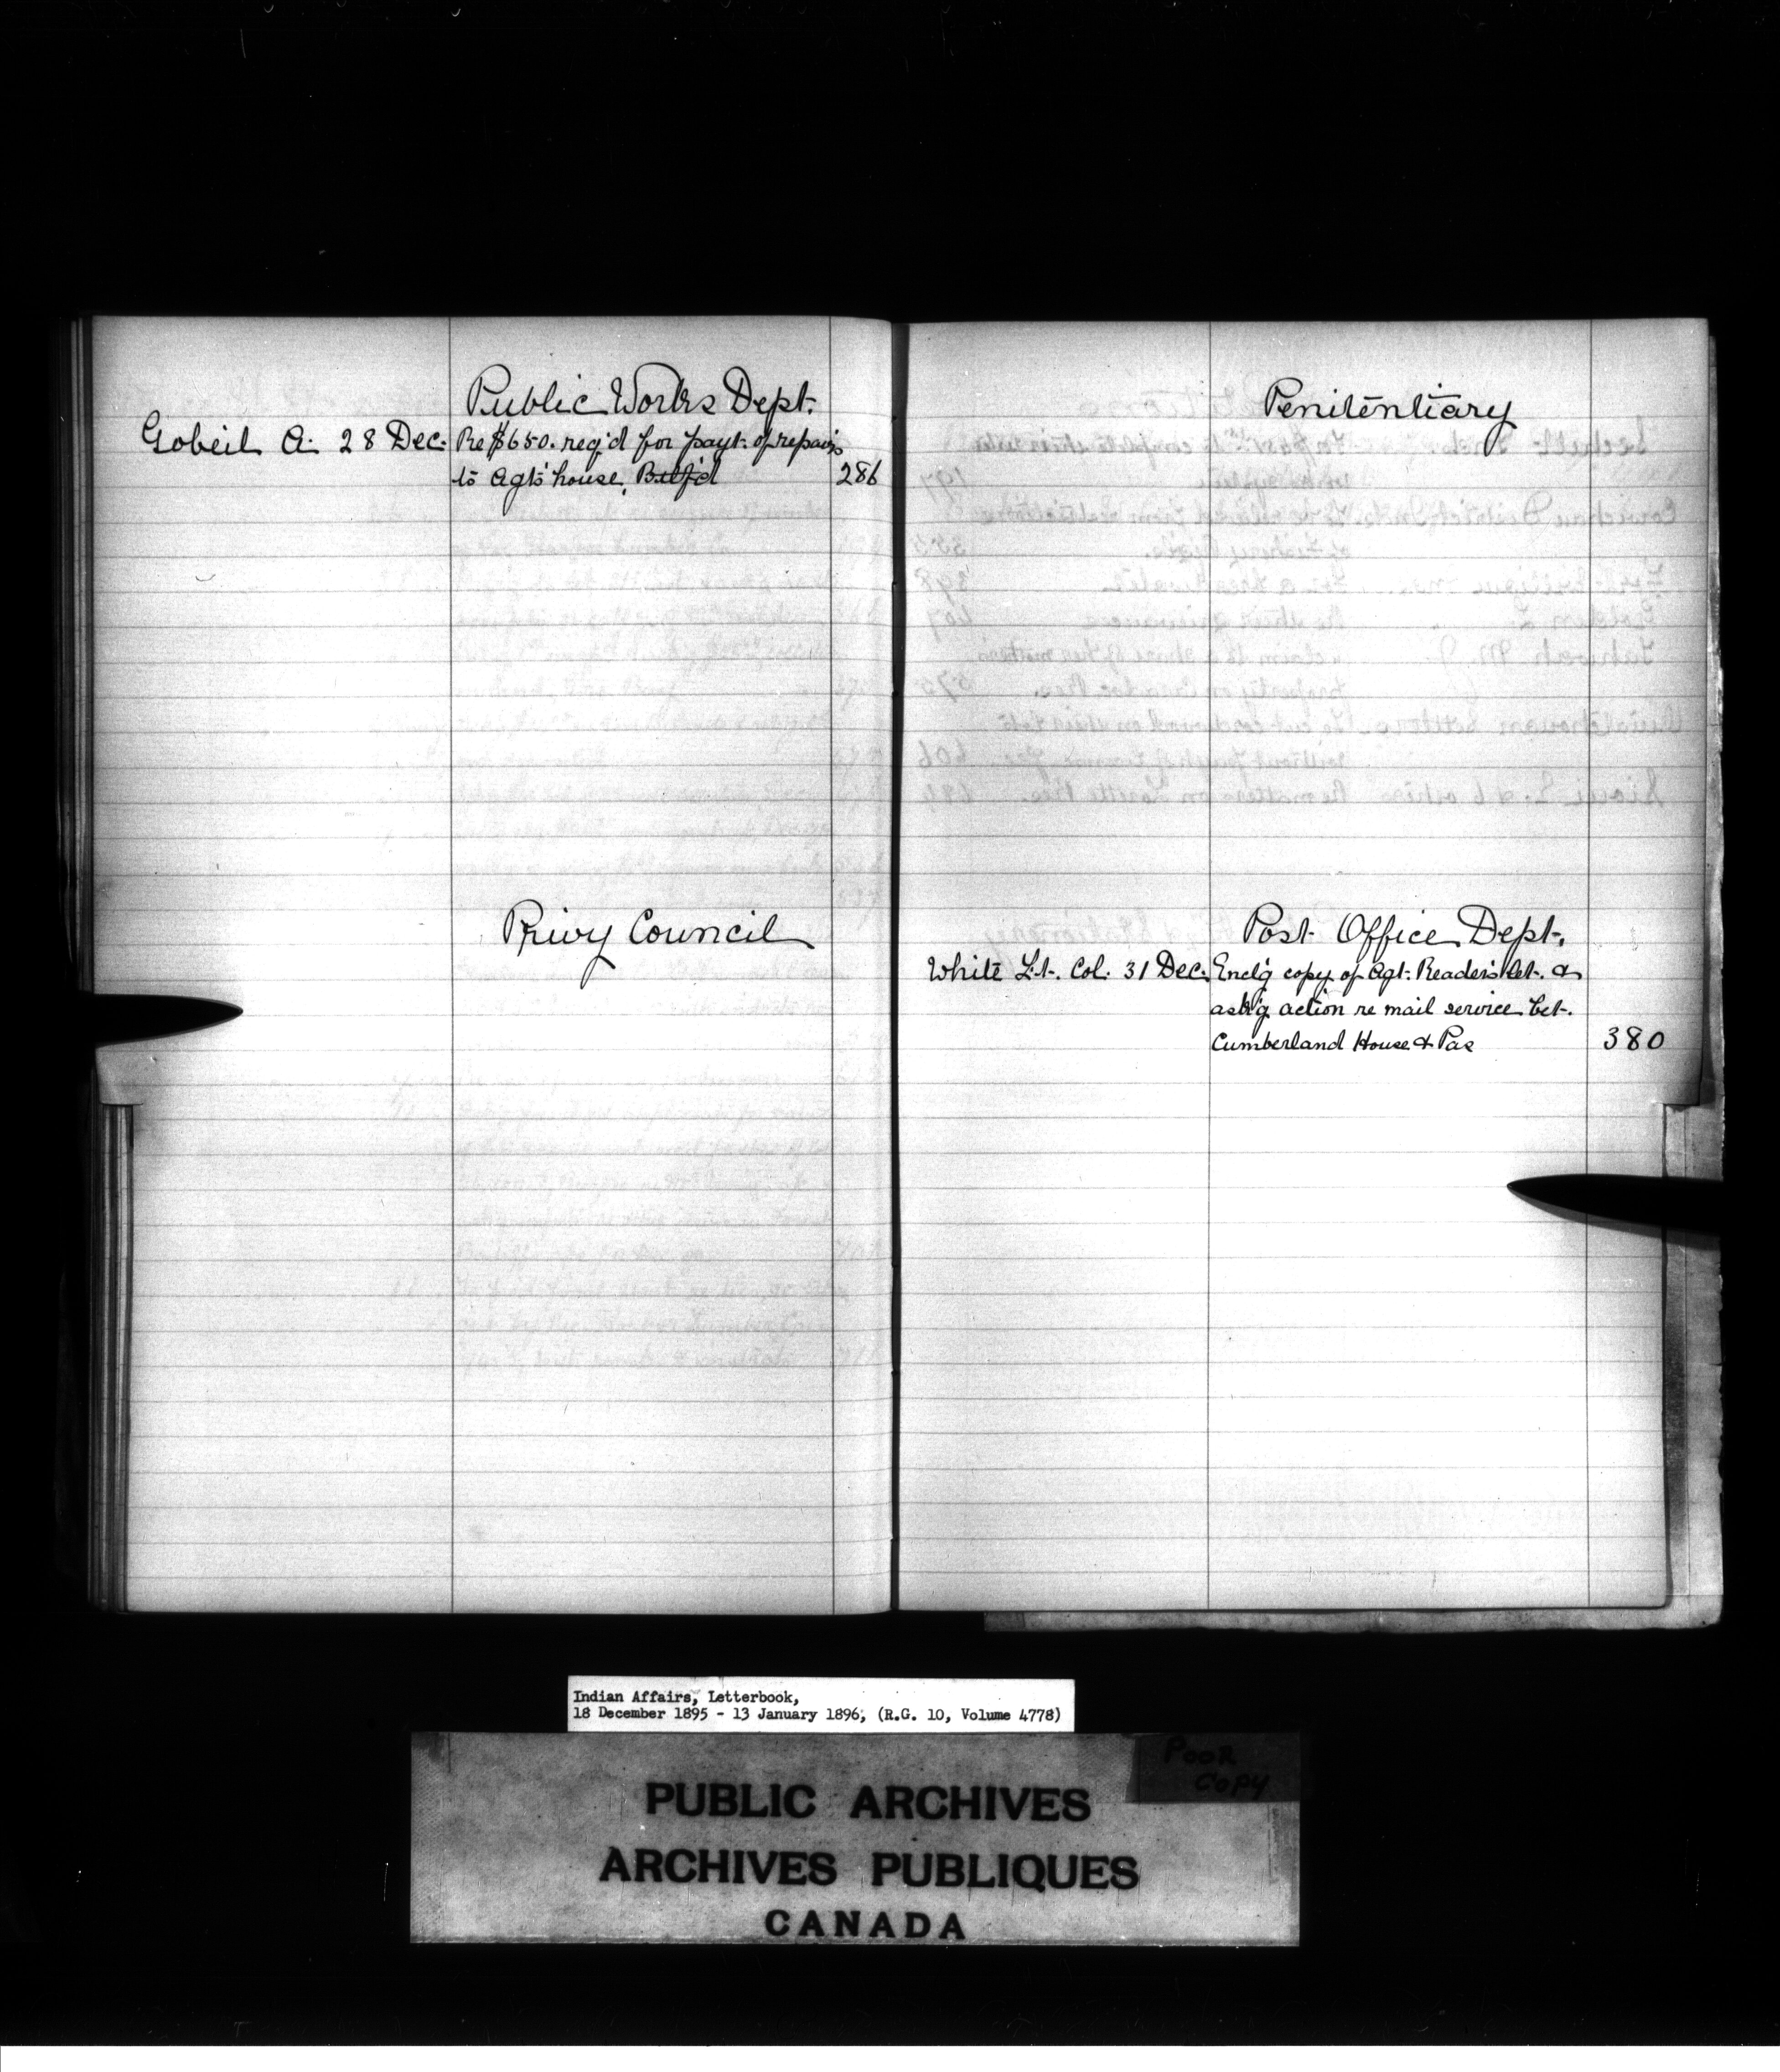 Public Works Dept.
Gobeil A. 28 Dec. Re $650. req'd for payt. of repairs
to Agt's house, Batlf'd 286
Privy Council
Penitentiary
Post Office Dept.
White Lt. Col. 31 Dec. Encl'g copy of Agt. Reader's let. &
ask'g action re mail service bet.
Cumberland House & Pas 380
Indian Affairs, Letterbook,
18 December 1895 - 13 January 1896, (R.G. 10, Volume 4778)
POOR
COPY
PUBLIC ARCHIVES
ARCHIVES PUBLIQUES
CANADA